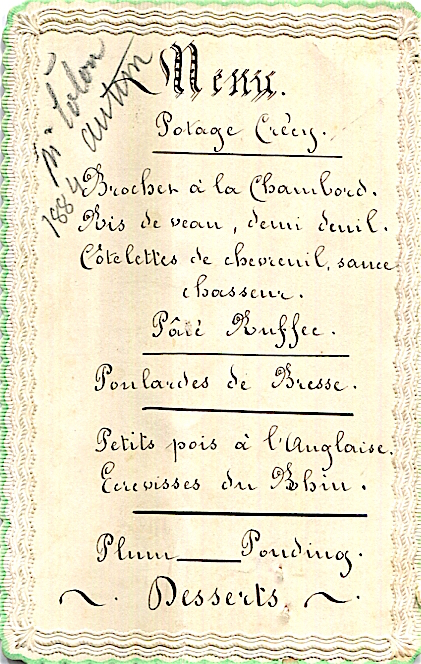 Mr Colon
autun
1884
Menu.
Potage Crécy.
Brochet à la Chambord.
Ris de veau, demi deuil.
Côtelettes de chevreuil, sauce
chasseur.
Pâté Ruffec.
Poulardes de Bresse.
Petits pois à l'Anglaise.
Ecrevisses du Rhin.
Plum — Pouding.
~ . Desserts. ~ .